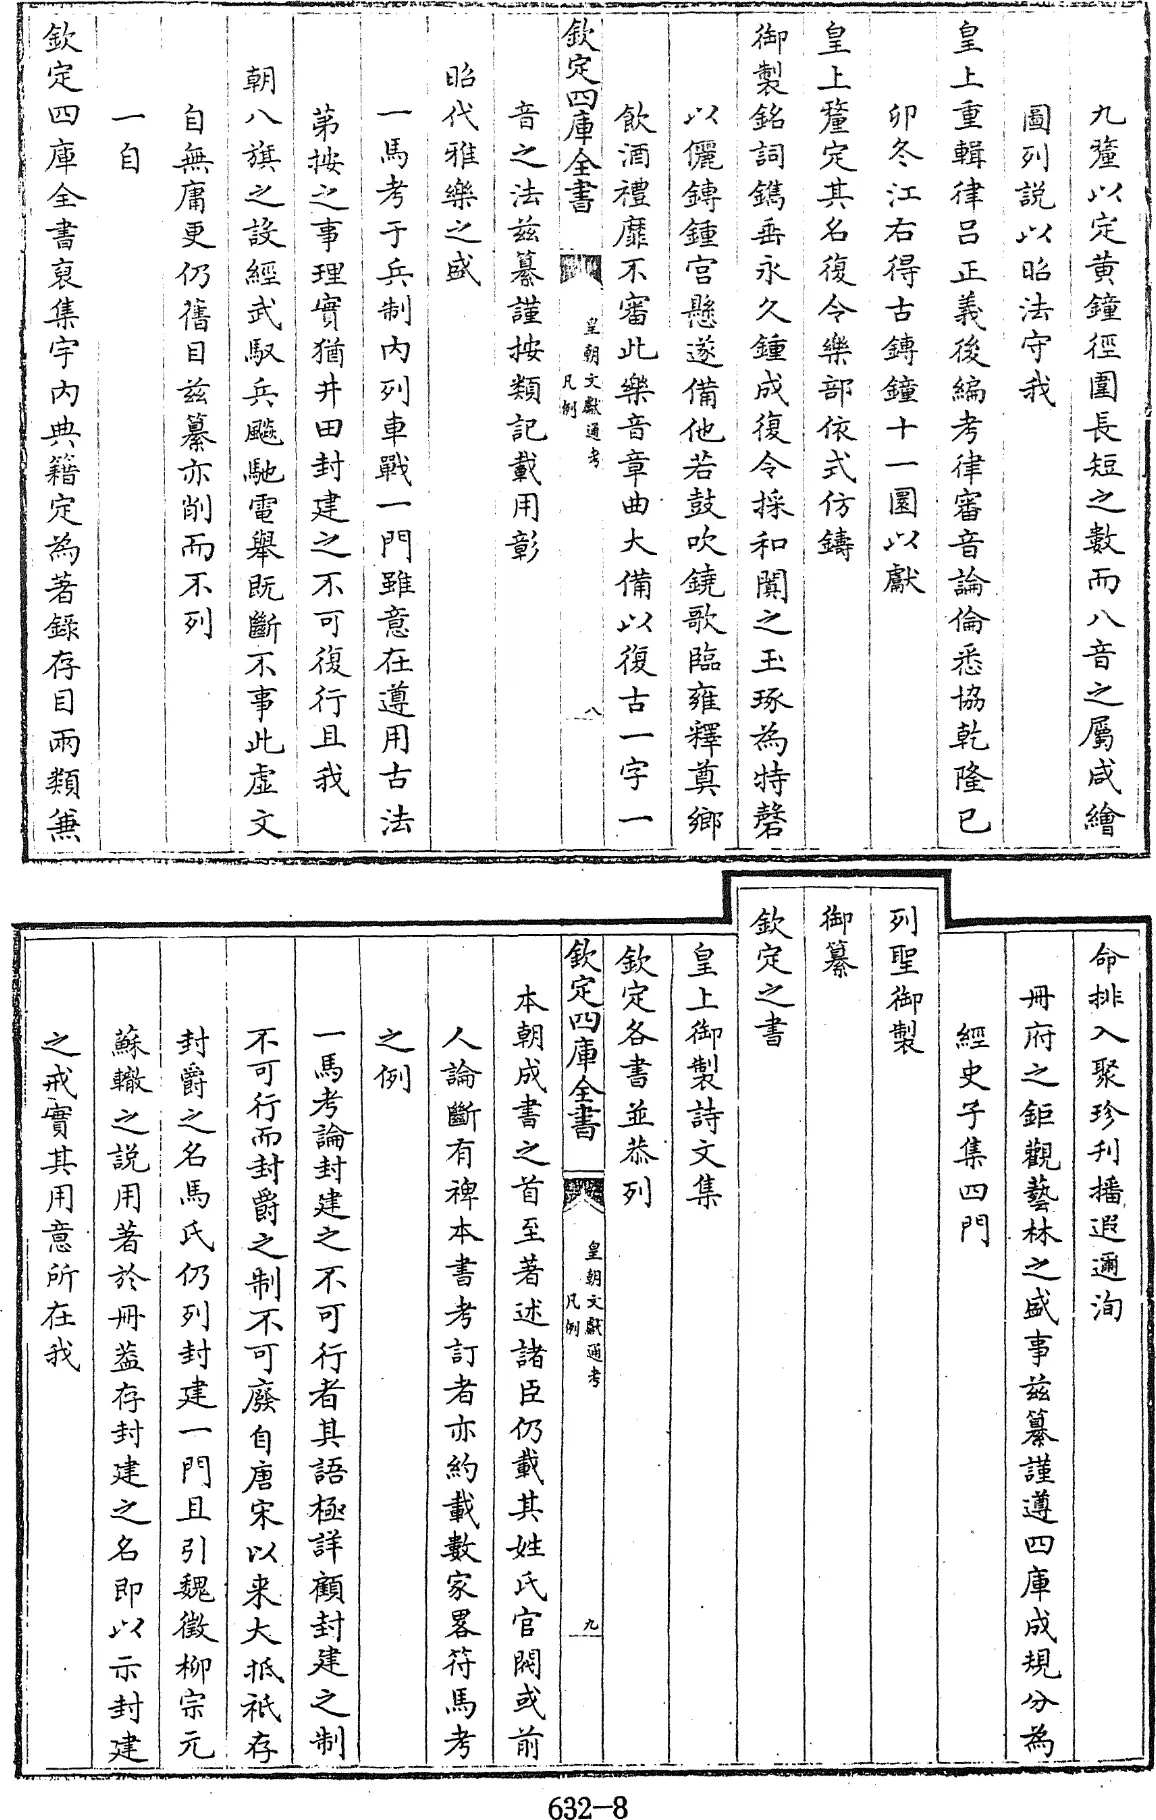 九釐以定黄鐘徑圍長短之數而八音之屬咸繪
圖列説以昭法守我
皇上重輯律吕正義後編考律審音論倫悉協乾隆己
卯冬江右得古鎛鐘十一圜以獻
皇上釐定其名復令樂部依式仿鑄
御製銘詞鐫垂永久鍾成復令採和闐之玉琢為特磬
以儷鎛鍾宫懸遂備他若鼓吹鐃歌臨雍釋奠鄉
飲酒禮靡不審此樂音章曲大備以復古一字一
欽定四庫全書
皇朝文獻通考
凡例
八
音之法兹纂謹按類記載用彰
昭代雅樂之盛
一馬考于兵制内列車戰一門雖意在遵用古法
苐按之事理實猶井田封建之不可復行且我
朝八旗之設經武馭兵飇馳電舉既斷不事此虚文
自無庸更仍舊目兹纂亦削而不列
一自
欽定四庫全書裒集宇内典籍定為著錄存目兩類兼
命排入聚珍刋播遐邇洵
冊府之鉅觀藝林之盛事兹纂謹遵四庫成規分為
經史子集四門
列聖御製
御纂
欽定之書
皇上御製詩文集
欽定各書並恭列
欽定四庫全書
皇朝文獻通考
凡例
九
本朝成書之首至著述諸臣仍載其姓氏官閥或前
人論斷有裨本書考訂者亦約載數家畧符馬考
之例
一馬考論封建之不可行者其語極詳顧封建之制
不可行而封爵之制不可廢自唐宋以来大抵祇存
封爵之名馬氏仍列封建一門且引魏徵柳宗元
蘇轍之説用著於冊葢存封建之名即以示封建
之戒實其用意所在我
632-8